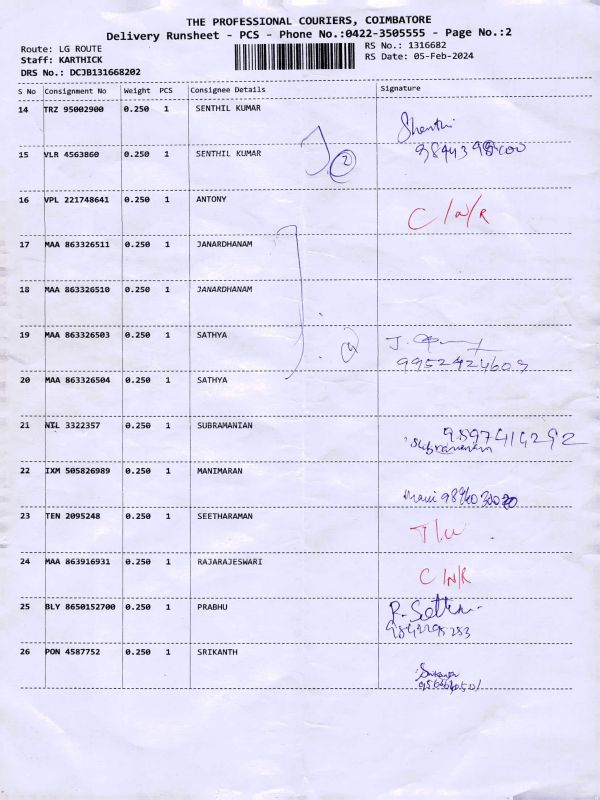 THE PROFESSIONAL COURIERS, COIMBATORE
Delivery Runsheet - PCS - Phone No.:0422-3505555 - Page No.:2
Route: LG ROUTE
RS No.: 1316682
Staff: KARTHICK
RS Date: 05-Feb-2024
DRS No.: DCJB131668202
S No Consignment No Weight PCS Consignee Details Signature
14 TRZ 95002900 0.250 1 SENTHIL KUMAR
15 VLR 4563860 0.250 1 SENTHIL KUMAR
2
16 VPL 221748641 0.250 1 ANTONY C/N/R
17 MAA 863326511 0.250 1 JANARDHANAM
18 MAA 863326510 0.250 1 JANARDHANAM
19 MAA 863326503 0.250 1 SATHYA J.
9952424609
20 MAA 863326504 0.250 1 SATHYA
21 NTL 3322357 0.250 1 SUBRAMANIAN
22 IXM 505826989 0.250 1 MANIMARAN
Mani
23 TEN 2095248 0.250 1 SEETHARAMAN
24 MAA 863916931 0.250 1 RAJARAJESWARI C/N/R
25 BLY 8650152700 0.250 1 PRABHU R.
26 PON 4587752 0.250 1 SRIKANTH